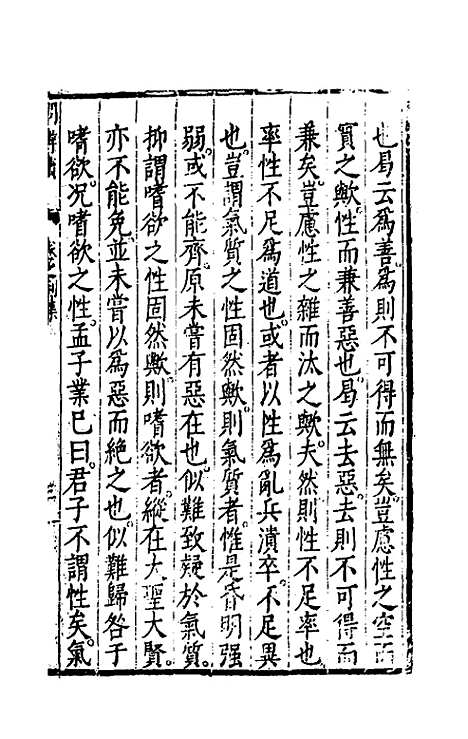 也曷云為善為則不可得而無矣豈慮性之空而
實之歟性而兼善惡也曷云去惡去則不可得而
兼矣豈慮性之雜而汰之歟夫然則性不足率也
率性不足為道也或者以性為亂兵潰卒不足異
也豈謂氣質之性固然歟則氣質者惟是昏明強
弱或不能齊原未嘗有惡在也似難致疑於氣質
抑謂嗜欲之性固然歟則嗜欲者縱在大聖大賢
亦不能免並未嘗以為惡而絕之也似難歸咎于
嗜欲況嗜欲之性孟子業已曰君子不謂性矣氣